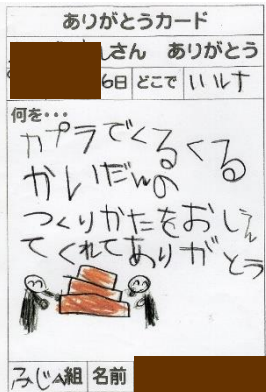 ありがとうカード
さん ありがとう
6日 どこで いいルナ
何を・・・
カプラでくるくる
かいだんの
つくりかたをおしえ
てくれてありがとう
組 名前